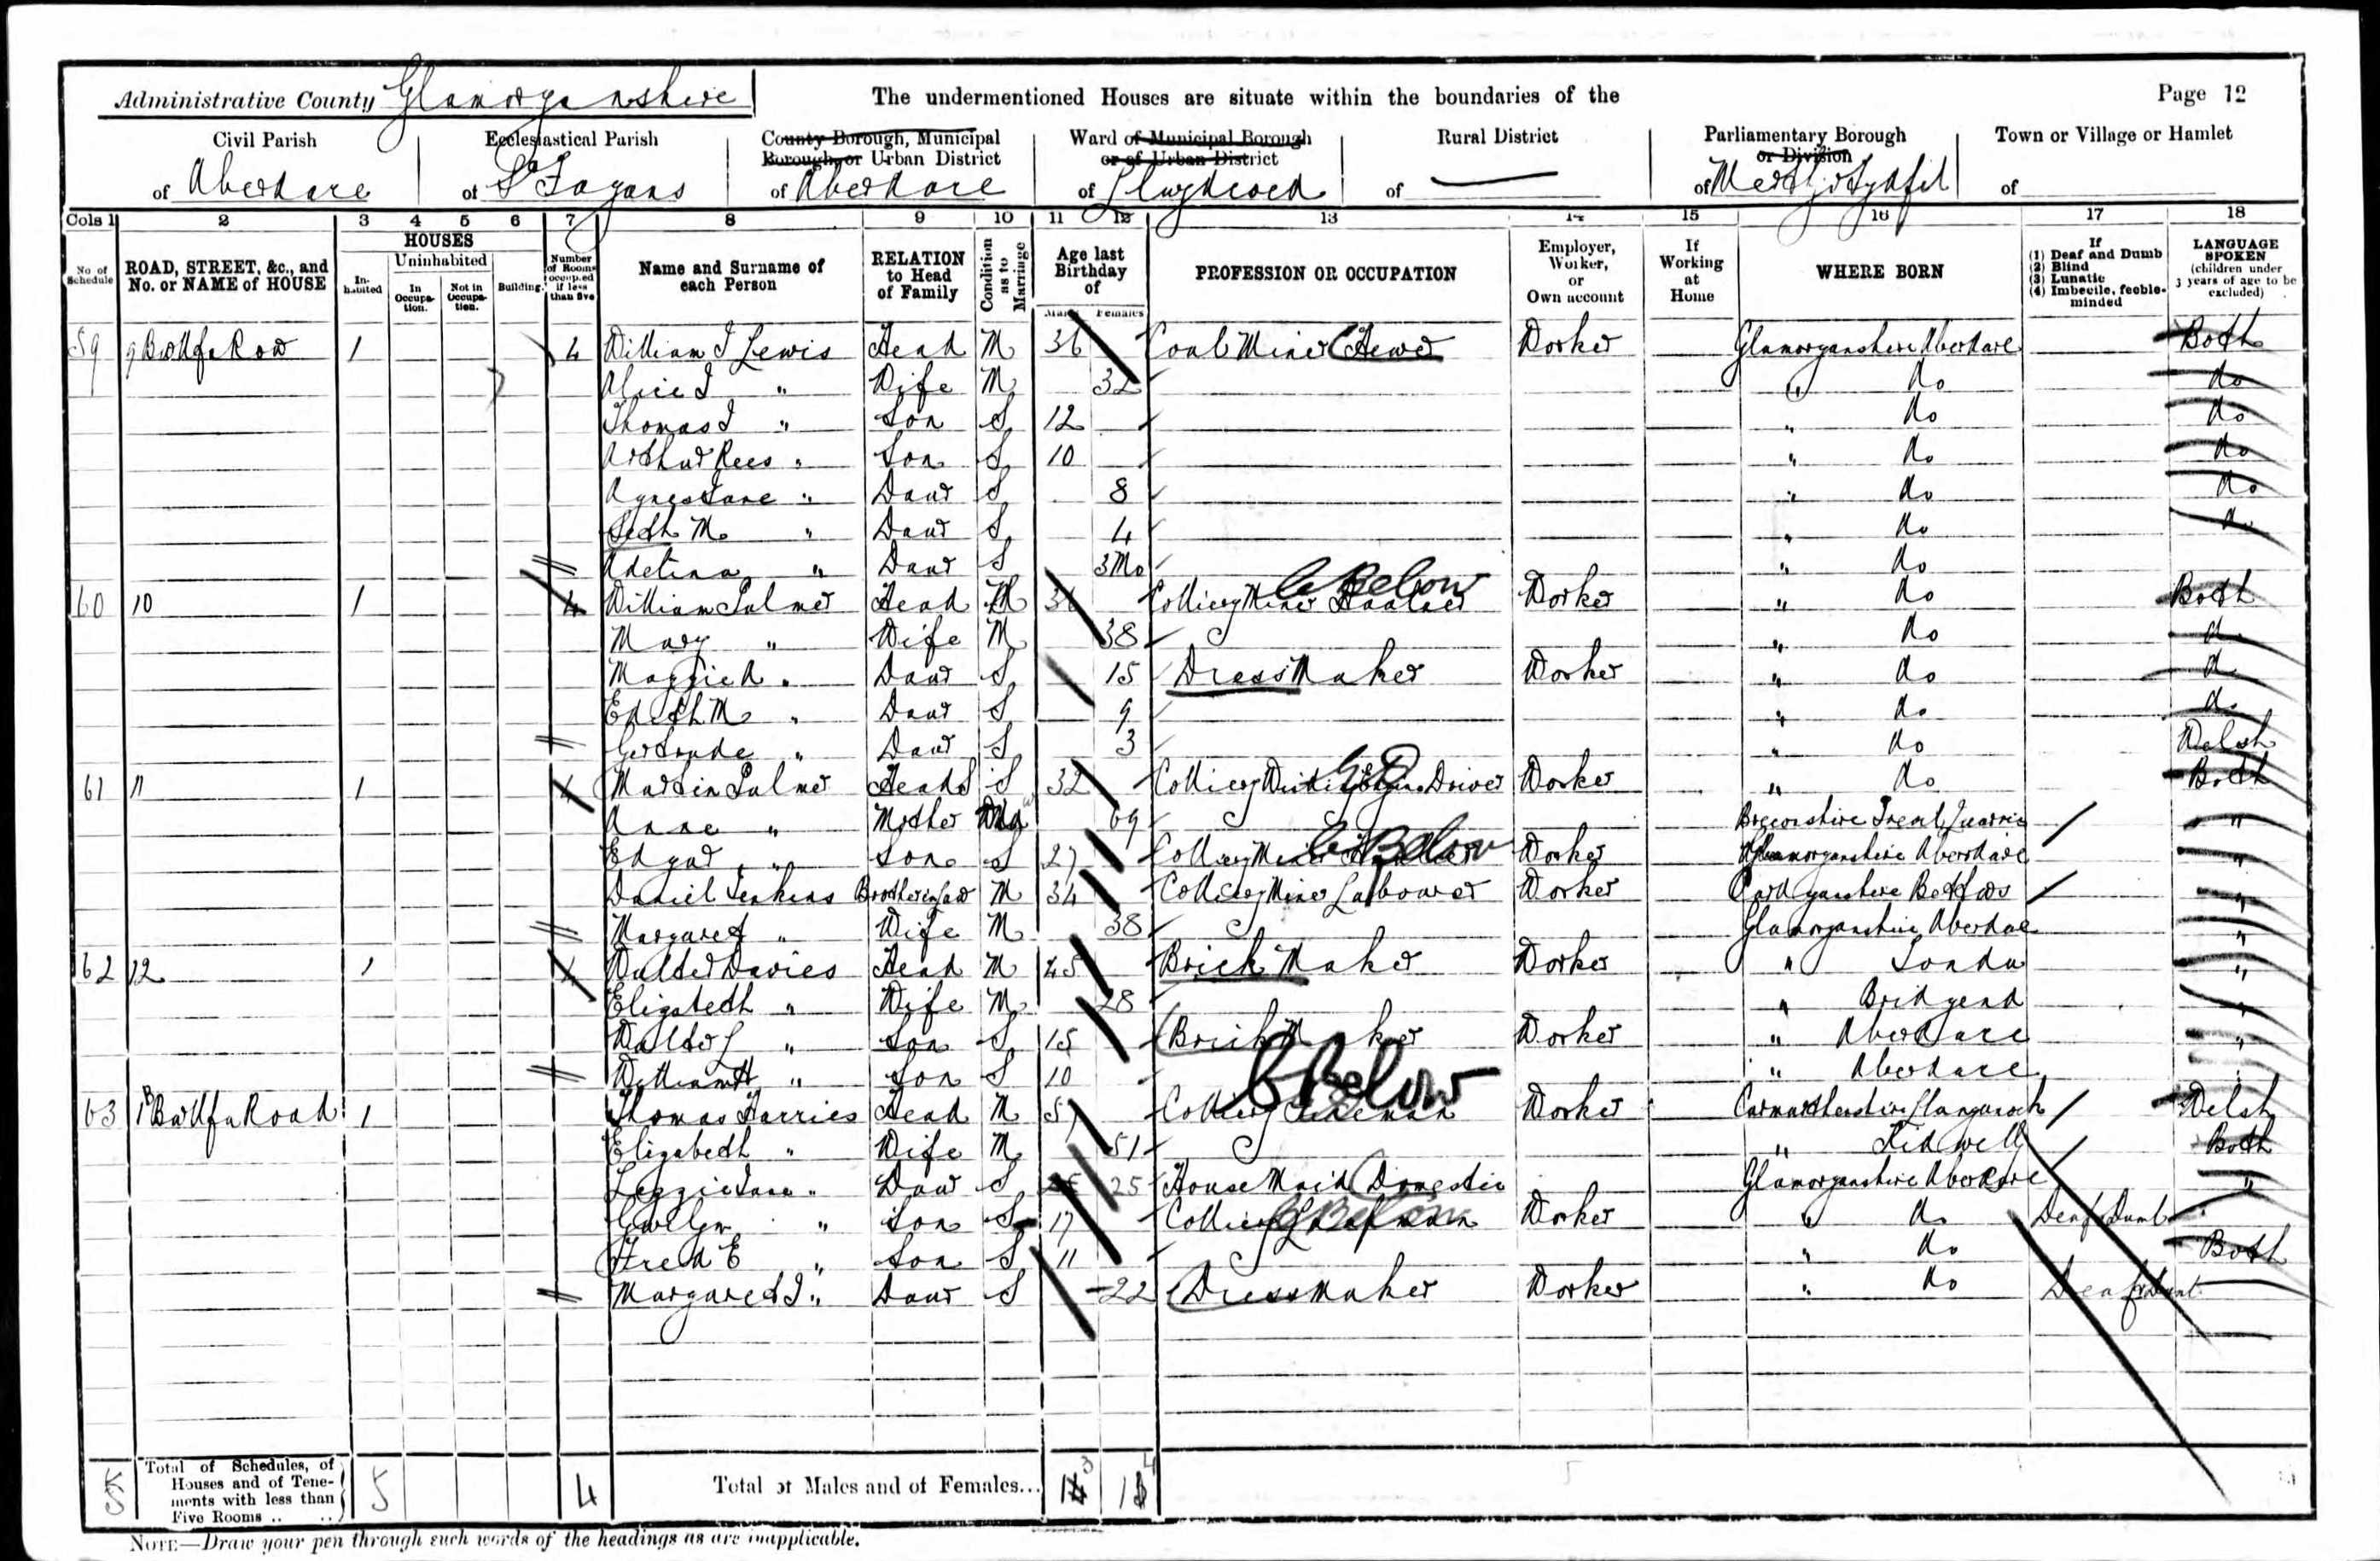 Administrative County Glamorganshire The undermentioned Houses are situate within the boundaries of the Page 12
Civil Parish Ecclesiastical Parish County Borough, Municipal Borough, or Urban District Ward of Municipal Borough or of Urban District Rural District Parliamentary Borough or Division Town or Village or Hamlet
of Aberdare of St Fagans of Aberdare of Llwydcoed of — of Merthyr Tydfil of
Cols 1 2 3 4 5 6 7 8 9 10 11 12 13 14 15 16 17 18
No. of Schedule ROAD, STREET, &c., and No. or NAME of HOUSE HOUSES In-habited Uninhabited In Occupa-tion. Not in Occupa-tion. Building. Number of Rooms occupied if less than five Name and Surname of each Person RELATION to Head of Family Condition as to Marriage Age last Birthday of Males Females PROFESSION OR OCCUPATION Employer, Worker, or Own account If Working at Home WHERE BORN If (1) Deaf and Dumb (2) Blind (3) Lunatic (4) Imbecile, feeble-minded LANGUAGE SPOKEN (children under 3 years of age to be excluded)
59 9 Row 1 4 William J Lewis Head M 36 Coal Miner Hewer Worker Glamorganshire Aberdare Both
Alice J " Wife M 32 " do do
Thomas J " Son S 12 " do do
Arthur Rees " Son S 10 " do do
Agnes Jane " Daur S 8 " do do
M " Daur S 4 " do do
Adelina " Daur S 3Mo " do
60 10 1 4 William Palmer Head M Colliery Miner Below Worker " do Both
Mary " Wife M 38 " do do
Maggie A " Daur S 15 Dress Maker Worker " do do
Edith M " Daur S 9 " do do
Gertrude " Daur S 3 " do Welsh
61 11 1 4 Martin Palmer Head S 32 Colliery Driver Worker " do Both
Anne " Mother Wid 69 Breconshire "
Edgar " Son S 27 Colliery Miner Below Worker Glamorganshire Aberdare "
Daniel Jenkins Brother in law M 34 Colliery Mine Labourer Worker Cardiganshire "
Margaret " Wife M 38 Glamorganshire Aberdare "
62 12 1 4 Walter Davies Head M 45 Brick Maker Worker " "
Elizabeth " Wife M 28 " Bridgend "
Walter J " Son S 15 Brick Maker Worker " Aberdare "
William H " Son S 10 " Aberdare
63 Road 1 Thomas Harries Head M 57 Colliery Below Worker Carmarthenshire Welsh
Elizabeth " Wife M 51 " Kidwelly Both
Lizzie Jane " Daur S 25 House Maid Domestic Glamorganshire Aberdare "
Gwilym " Son S 17 Colliery Below Worker " do Deaf & Dumb
Fred E " Son S 11 " do Both
Margaret J " Daur S 22 Dressmaker Worker " do Deaf & Dumb
5 Total of Schedules, of Houses and of Tene-ments with less than Five Rooms .. .. 5 4 Total of Males and of Females...
NOTE—Draw your pen through such words of the headings as are inapplicable.